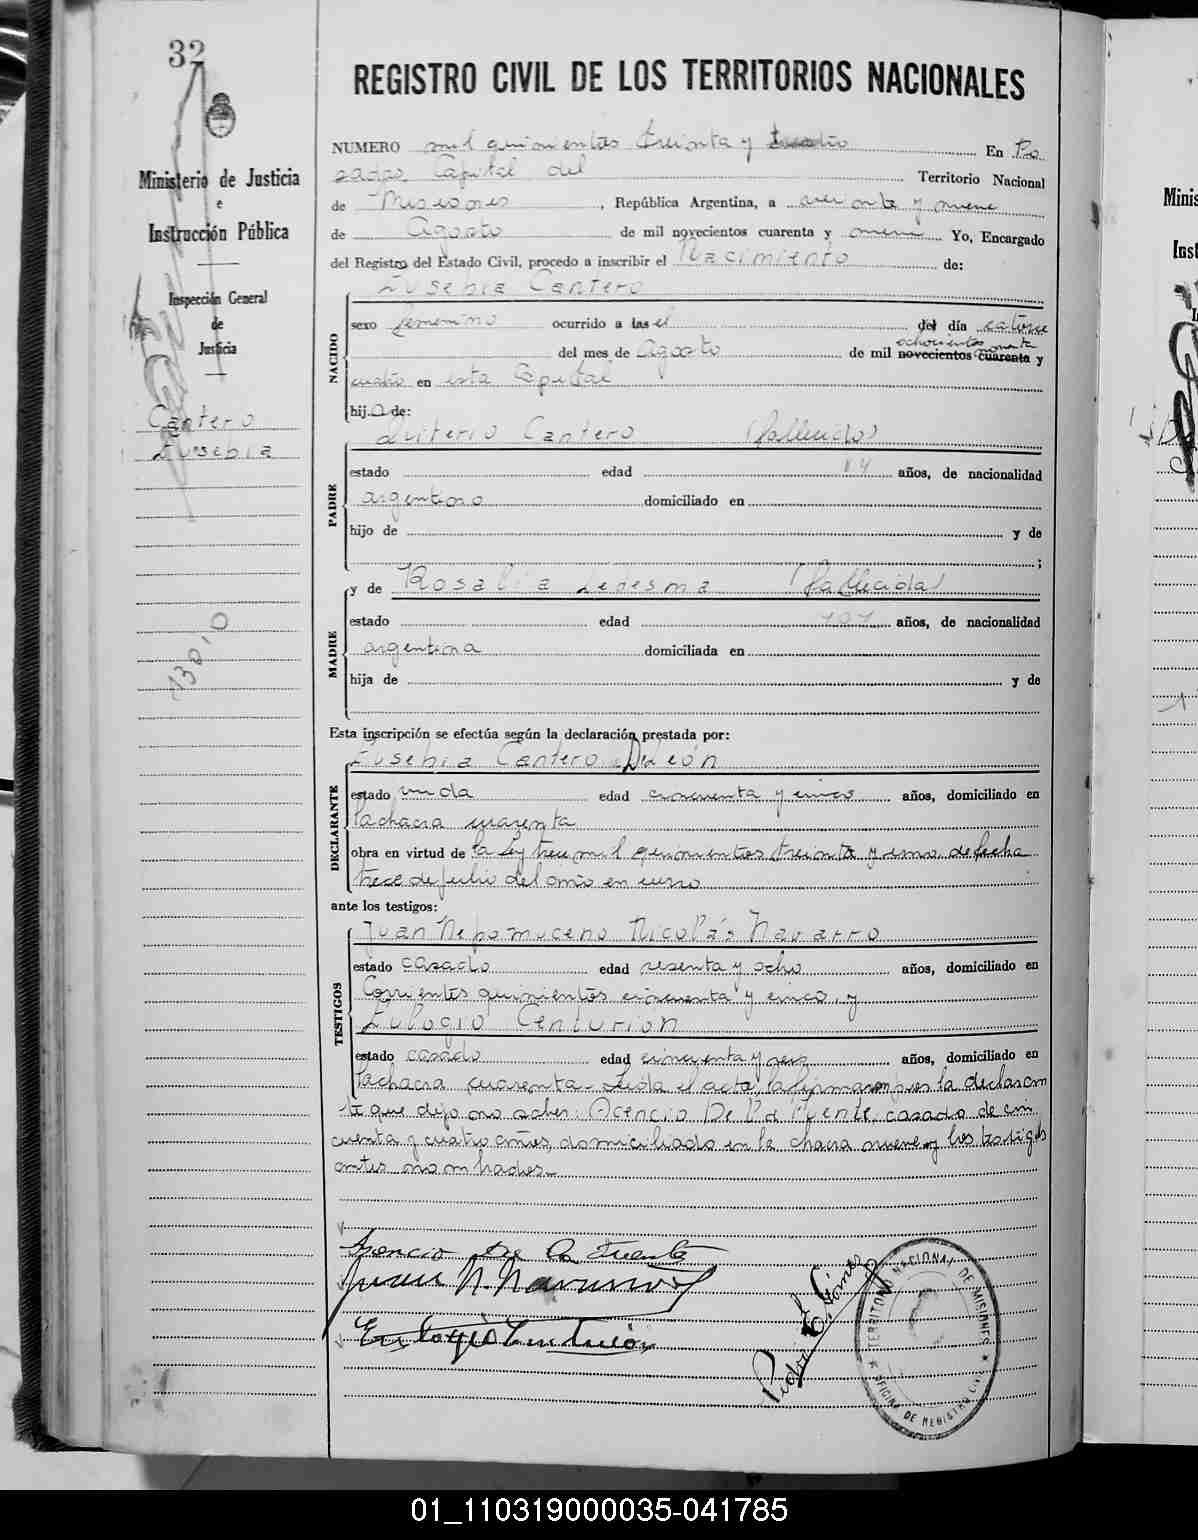 32
REGISTRO CIVIL DE LOS TERRITORIOS NACIONALES
Ministerio de Justicia
e
Instrucción Pública
Inspección General
de
Justicia
Cantero
Eusebia
NUMERO mil quinientos treinta y En Po
sadas Capital del Territorio Nacional
de Misiones, República Argentina, a y nueve
de Agosto de mil novecientos cuarenta y nueve Yo, Encargado
del Registro del Estado Civil, procedo a inscribir el Nacimiento de:
NACIDO
Eusebia Cantero
sexo femenino ocurrido a las el del día catorce
ochocientos noventa
del mes de Agosto de mil novecientos cuarenta y
cuatro en esta Capital
hija de:
PADRE
Quiterio Cantero (fallecido)
estado edad años, de nacionalidad
argentino domiciliado en
hijo de y de
;
MADRE
y de Rosalía Ledesma (fallecida)
estado edad años, de nacionalidad
argentina domiciliada en
hija de y de
Esta inscripción se efectúa según la declaración prestada por:
DECLARANTE
Eusebia Cantero De León
estado viuda edad cincuenta y cinco años, domiciliado en
la chacra cuarenta
obra en virtud de la ley trece mil quinientos treinta y uno de fecha
trece de julio del año en curso
ante los testigos:
TESTIGOS
Juan Nepomuceno Nicolás Navarro
estado casado edad sesenta y ocho años, domiciliado en
Corrientes quinientos cincuenta y cinco, y
Eulogio Centurión
estado casado edad cincuenta y seis años, domiciliado en
la chacra cuarenta. Leída el acta, la firmaron por la declaran
te que dijo no saber: Asencio De La Fuente, casado de cin
cuenta y cuatro años, domiciliado en la chacra nueve y los testigos
antes nombrados.
Asencio De la Fuente
Juan N. Navarro
Eulogio Centurión
Pedro E. Gómez
TERRITORIO NACIONAL DE MISIONES
OFICINA DE REGISTRO CIVIL
Minis
Inst
01_110319000035-041785